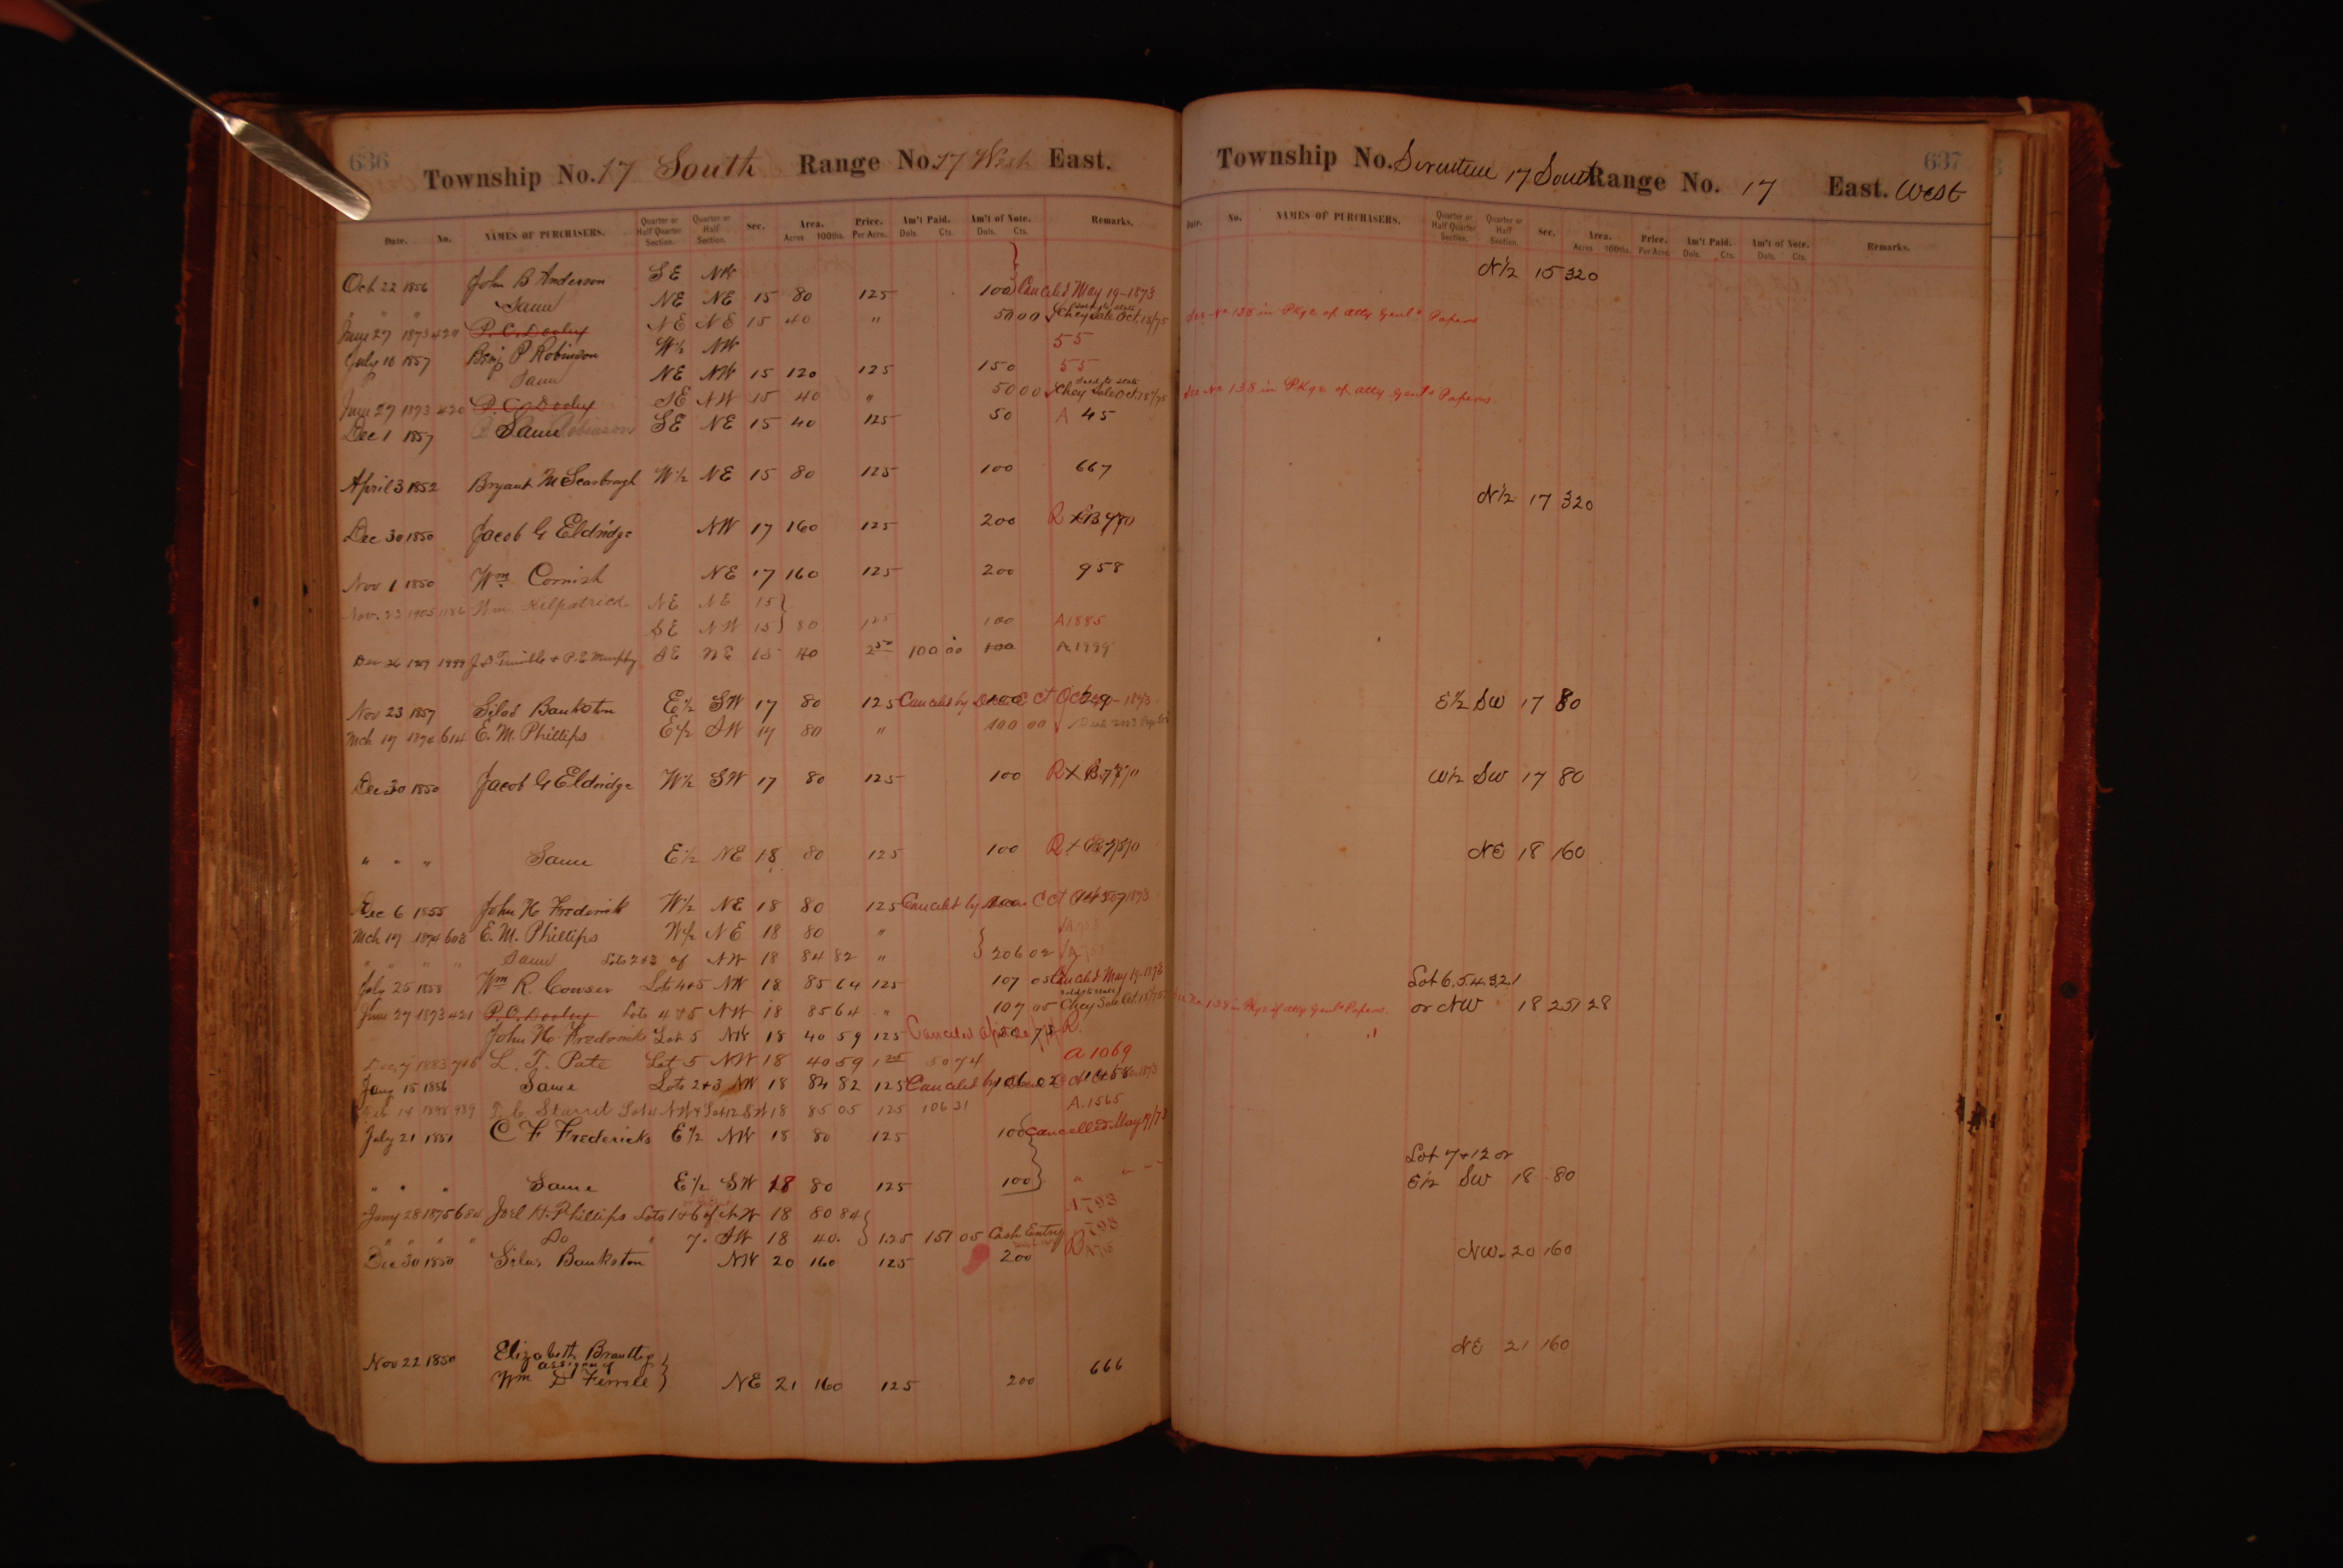 636
Township No. 17 South Range No. 17 West East.
Date. No. NAMES OF PURCHASERS. Quarter or Half Quarter Section. Quarter or Half Section. Sec. Area. Acres 100ths. Price. Per Acre. Am't Paid. Dols. Cts. Am't of Note. Dols. Cts. Remarks.
Oct 22 1856 John B Anderson SE NW
Same NE NE 15 80 125 100 Canceled May 19-1873
June 27 1873 420 P. C. Dooley NE NE 15 40 " 50 00 Chey Sale Oct. 18/75
July 10 1857 Benj P Robinson W½ NW 55
Same NE NW 15 120 125 150 55
June 27 1873 420 P. C. Dooley SE NW 15 40 " 50 00 Chey Sale Oct. 18/75
Dec 1 1857 Same Robinson SE NE 15 40 125 50 A 45
April 3 1852 Bryant M Scarbrough W½ NE 15 80 125 100 667
Dec 30 1850 Jacob G Eldridge NW 17 160 125 200 R
Nov 1 1850 Wm Cornish NE 17 160 125 200 958
Nov. 23 1905 1186 Wm. Kilpatrick NE NE 15
SE NW 15 80 125 100 A1885
1999 J. D. Trimble & P. E. Murphy SE NE 15 40 2 50 100 00 100 A.1999
Nov 23 1857 Silas Bankston E½ SW 17 80 125 Canceled by 1873
Mch 17 1874 614 E. M. Phillips E½ SW 17 80 " 100 00
Dec 30 1850 Jacob G Eldridge W½ SW 17 80 125 100 R
" " " Same E½ NE 18 80 125 100 R
Dec 6 1855 John H Frederick W½ NE 18 80 125 Canceled by 1873
Mch 17 1874 603 E. M. Phillips W½ NE 18 80 "
" " " " Same Lots 2+3 of NW 18 84 82 " 206 02
July 25 1858 Wm R. Cowser Lots 4+5 NW 18 85 64 125 107 05 Canceled May 19-1873
June 27 1873 421 P. C. Dooley Lots 4+5 NW 18 85 64 " 107 05 Chey Sale Oct. 18/75
John H. Fredericks Lot 5 NW 18 40 59 125 Canceled R.
Dec 7 1883 716 L. T. Pate Lot 5 NW 18 40 59 1 25 50 74 A 1069
Jany 15 1856 Same Lots 2+3 NW 18 84 82 125 Canceled by 106.02 1873
Feb 14 1898 989 Starrit Lot 4 NW + Lot 12 SW 18 85 05 125 106 31 A.1565
July 21 1851 C F Fredericks E½ NW 18 80 125 100 Cancelled May 19/73
" " " Same E½ SW 18 80 125 100 "
Jany 28 1875 684 Joel H. Phillips Lots 1+6 of NW 18 80 84 A793
" " " " Do " 7. SW 18 40. 125 151 05 Cash Entry A793
Dec 30 1850 Silas Bankston NW 20 160 125 200 R
Nov 22 1850 Elizabeth Brantley
assignee of
Wm D Ferrill NE 21 160 125 200 666
637
Township No. Seventeen 17 South Range No. 17 East. West
Date. No. NAMES OF PURCHASERS. Quarter or Half Quarter Section. Quarter or Half Section. Sec. Area. Acres 100ths. Price. Per Acre. Am't Paid. Dols. Cts. Am't of Note. Dols. Cts. Remarks.
N½ 15 320
See No 138 in Pkge of Atty Genl's Papers
See No 138 in Pkge of Atty Genl's Papers
N½ 17 320
E½ SW 17 80
W½ SW 17 80
NE 18 160
Lot 6.5.4.3.2.1
See No 138 in Pkge of Atty Genl's Papers. or NW 18 251 28
Lot 7+12 or
E½ SW 18 80
NW. 20 160
NE 21 160